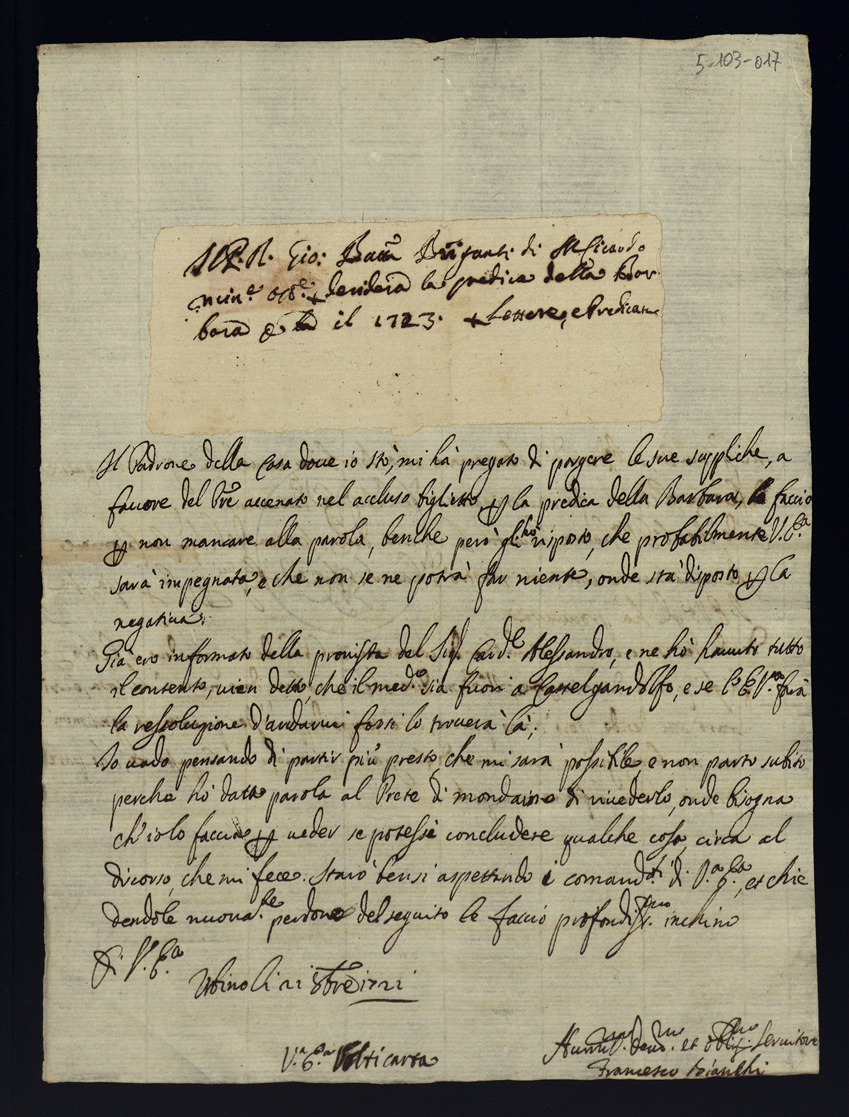 5-103-017
Il P. R. Gio: Batta Brifanti di Riccardo
min.e oss.e desidera la predica della Bar
bara il 1723. Lettore, e Predicatore
Il Padrone della Casa dove io stò, mi hà pregato di porgere le sue suppliche, a
favore del Pre accenato nel accluso biglietto p la predica della Barbara, le faccio
p non mancare alla parola, benche però gli hò risposto, che probabilmente V. E.a
sarà impegnata, e che non se ne potrà far niente, onde stà disposto p la
negativa.
Già ero informato della provista del Sig.r Card.le Alessandro, e ne hò havuto tutto
il contento, vien detto che il med.o sia fuori a Castelgandolfo, e se l'E. V.ra farà
la ressoluzione d'andarvi forsi lo troverà là.
Io vado pensando di partir più presto che mi sarà possibile e non parto subito
perche hò datto parola al Prete di mondaino di rivederlo, onde bisogna
ch'io lo faccia p veder se potesse concludere qualche cosa circa al
discorso, che mi fece. Starò bensi aspettando i comand.ti di V.a E.a, et chie
dendole nuova.te perdono del seguito le faccio profondiss.mo inchino
Di V.a E.a
Urbino li 21 8bre 1721
V.a E.a Volti carta
Humiliss.mo Devo.mo et oblig.mo Servitore
Francesco Bianchi